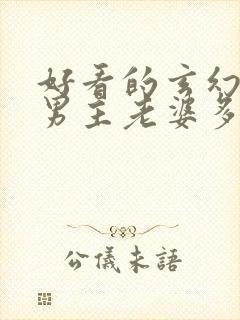 好看的玄幻
男主老婆多
公儀未語